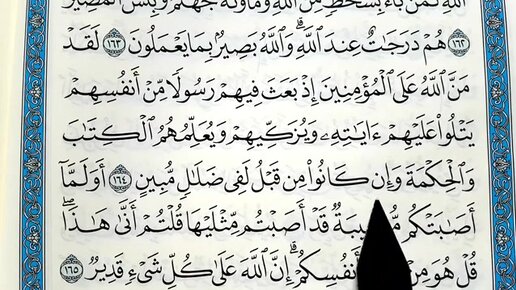 الله كمن باء بسخط من الله ومأونه جهنم وبئس المصير
١٦٢ هُمْ دَرَجَٰتٌ عِندَ ٱللَّهِ ۗ وَٱللَّهُ بَصِيرٌۢ بِمَا يَعْمَلُونَ ١٦٣ لَقَدْ
مَنَّ ٱللَّهُ عَلَى ٱلْمُؤْمِنِينَ إِذْ بَعَثَ فِيهِمْ رَسُولًا مِّنْ أَنفُسِهِمْ
يَتْلُوا۟ عَلَيْهِمْ ءَايَٰتِهِۦ وَيُزَكِّيهِمْ وَيُعَلِّمُهُمُ ٱلْكِتَٰبَ
وَٱلْحِكْمَةَ وَإِن كَانُوا۟ مِن قَبْلُ لَفِى ضَلَٰلٍ مُّبِينٍ ١٦٤ أَوَلَمَّآ
أَصَٰبَتْكُم قَدْ أَصَبْتُم مِّثْلَيْهَا قُلْتُمْ أَنَّىٰ هَٰذَا ۖ
قُلْ هُوَ مِنْ أَنفُسِكُمْ ۗ إِنَّ ٱللَّهَ عَلَىٰ كُلِّ شَىْءٍ قَدِيرٌ ١٦٥